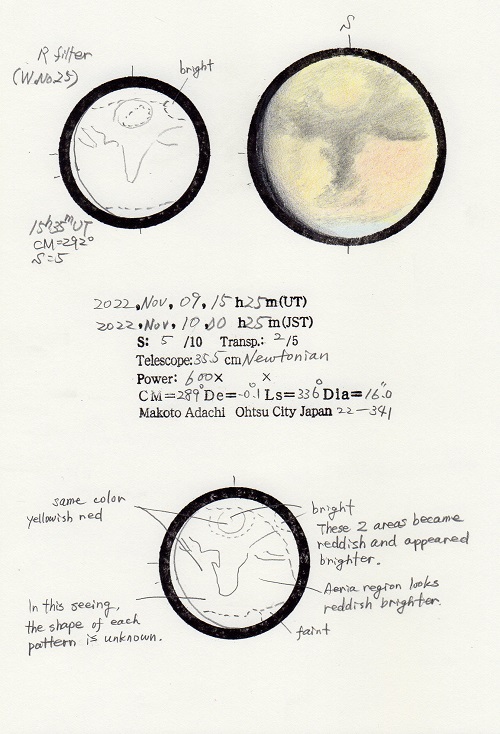 S
R filter
(W.No.25)
bright
15h35mUT
CM=292°
S=5
2022, Nov, 09, 15 h25m(UT)
2022, Nov, 10, 00 h25m(JST)
S: 5 /10 Transp.: 2/5
Telescope:355 cm Newtonian
Power: 600× ×
CM=289° De=-0.1° Ls=336° Dia=16.0"
Makoto Adachi Ohtsu City Japan 22-341
same color
yellowish red
bright
These 2 areas became
reddish and appeared
brighter.
Aeria region looks
reddish brighter.
In this seeing,
the shape of each
pattern is unknown.
faint